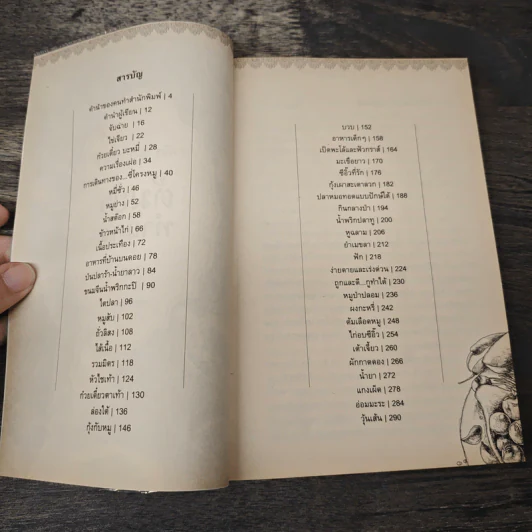 สารบัญ
คำนำของคนทำสำนักพิมพ์ | 4
คำนำผู้เขียน | 12
จับฉ่าย | 16
ไข่เจียว | 22
ก๋วยเตี๋ยว บะหมี่ | 28
ความเรื่องเผ่อ | 34
การเดินทางของ...ซี่โครงหมู | 40
หมี่ซั่ว | 46
หมูย่าง | 52
น้ำสต๊อก | 58
ข้าวหน้าไก่ | 66
เนื้อประเทือง | 72
อาหารที่บ้านบนดอย | 78
ป่นปลาร้า-น้ำยาลาว | 84
ขนมจีนน้ำพริกกะปิ | 90
ไตปลา | 96
หมูสับ | 102
ถั่วลิสง | 108
ไส้เนื้อ | 112
รวมมิตร | 118
หัวไชเท้า | 124
ก๋วยเตี๋ยวตาเท้า | 130
ล่องใต้ | 136
กุ้งกับหมู | 146
บวบ | 152
อาหารเด็กๆ | 158
เป็ดพะโล้และฟัวกราส์ | 164
มะเขือยาว | 170
ซีอิ๊วที่รัก | 176
กุ้งเผาสะเดาลวก | 182
ปลาหมอทอดแบบปักษ์ใต้ | 188
กินกลางป่า | 194
น้ำพริกปลาทู | 200
หูฉลาม | 206
ยำเมขลา | 212
ฟัก | 218
ง่ายดายและเร่งด่วน | 224
ถูกและดี...กูทำได้ | 230
หมูป่าปลอม | 236
ผงกะหรี่ | 242
ต้มเลือดหมู | 248
ไก่อบซีอิ๊ว | 254
เต้าเจี้ยว | 260
ผักกาดดอง | 266
น้ำยา | 272
แกงเผ็ด | 278
อ่อมมะระ | 284
วุ้นเส้น | 290